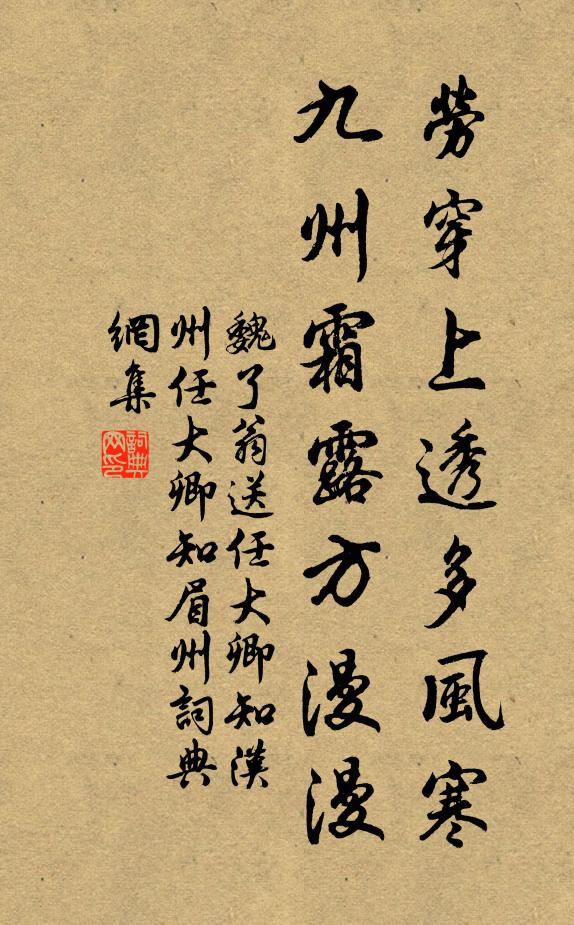 勞穿上透多風寒
九州霜露方漫漫
魏了翁送任大卿知漢
州任大卿知眉州詞典
網集
詞典
网印